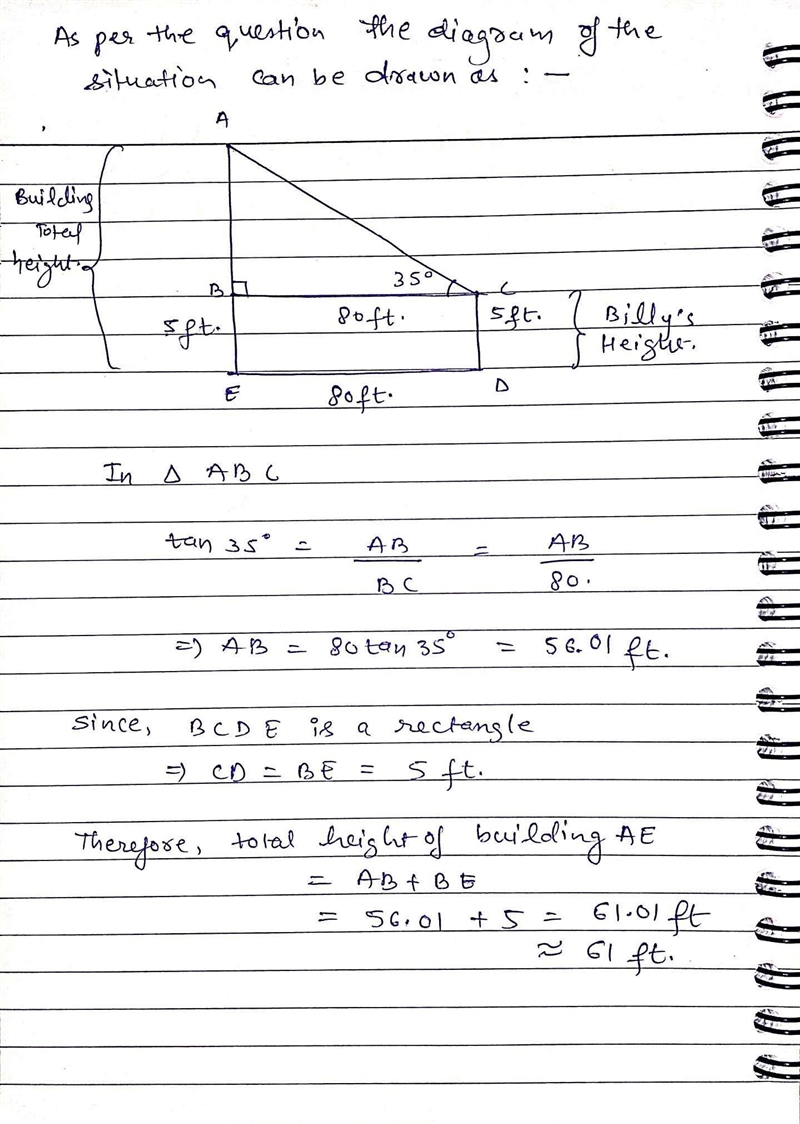 As per the question the diagram of the
situation can be drawn as : —
A
Building
Total
height.
B
35°
C
5ft.
80ft.
5ft.
Billy's
Height.
E
80ft.
D
In Δ ABC
tan 35° = AB/BC = AB/80.
=) AB = 80 tan 35° = 56.01 ft.
Since, BCDE is a rectangle
=) CD = BE = 5 ft.
Therefore, total height of building AE
= AB + BE
= 56.01 + 5 = 61.01 ft
≈ 61 ft.